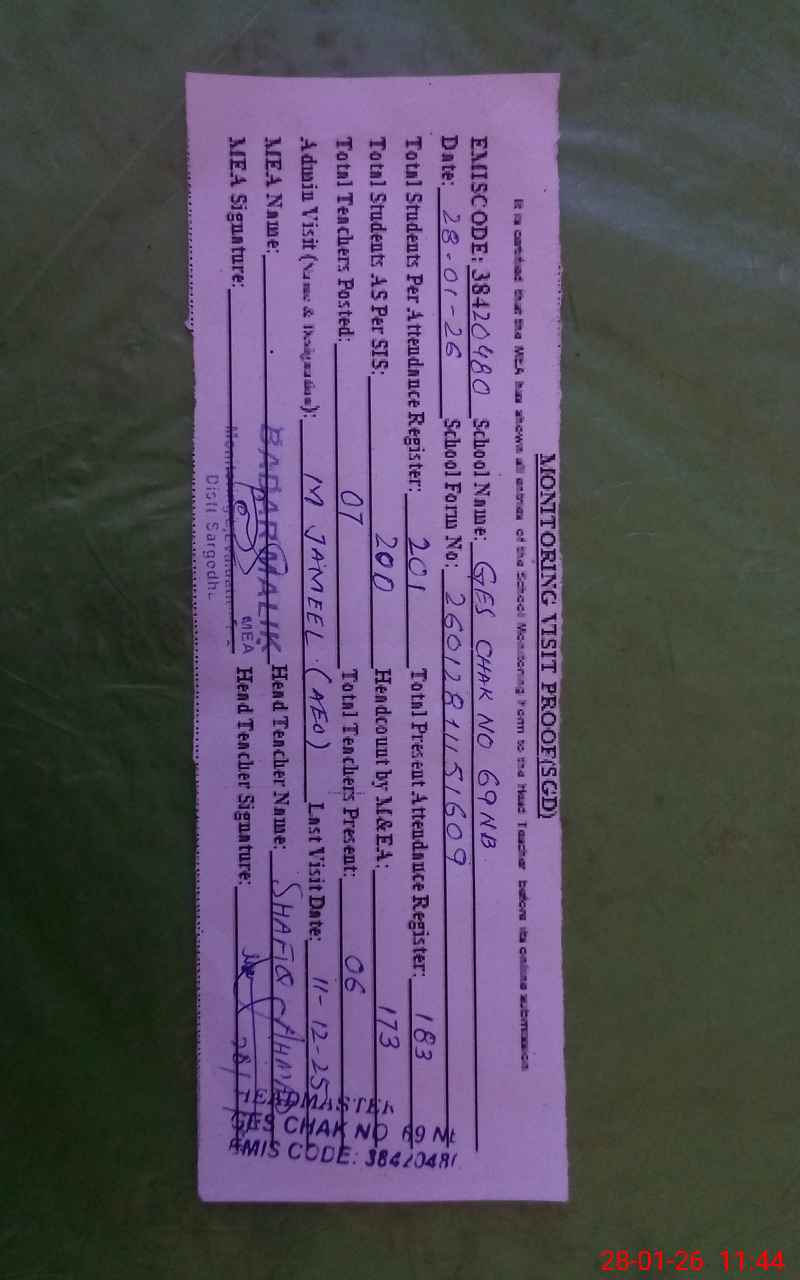 MONITORING VISIT PROOF(SGD)
It is certified that the MEA has shown all entries of the School Monitoring Form to the Head Teacher before its online submission
EMISCODE: 38420480 School Name: GES CHAK NO 69NB
Date: 28-01-26 School Form No:
Total Students Per Attendance Register: 201 Total Present Attendance Register: 183
Total Students AS Per SIS: 200 Headcount by M&EA: 173
Total Teachers Posted: 07 Total Teachers Present: 06
Admin Visit (Name & Designation): M JAMEEL. (AEO) Last Visit Date: 11-12-25
MEA Name: BADAR MALIK Head Teacher Name: SHAFIQ AHMAD
MEA Signature: MEA Head Teacher Signature:
Distt Sargodha
HEADMASTER
GES CHAK NO 69 NB
EMIS CODE: 38420480
28-01-26 11:44